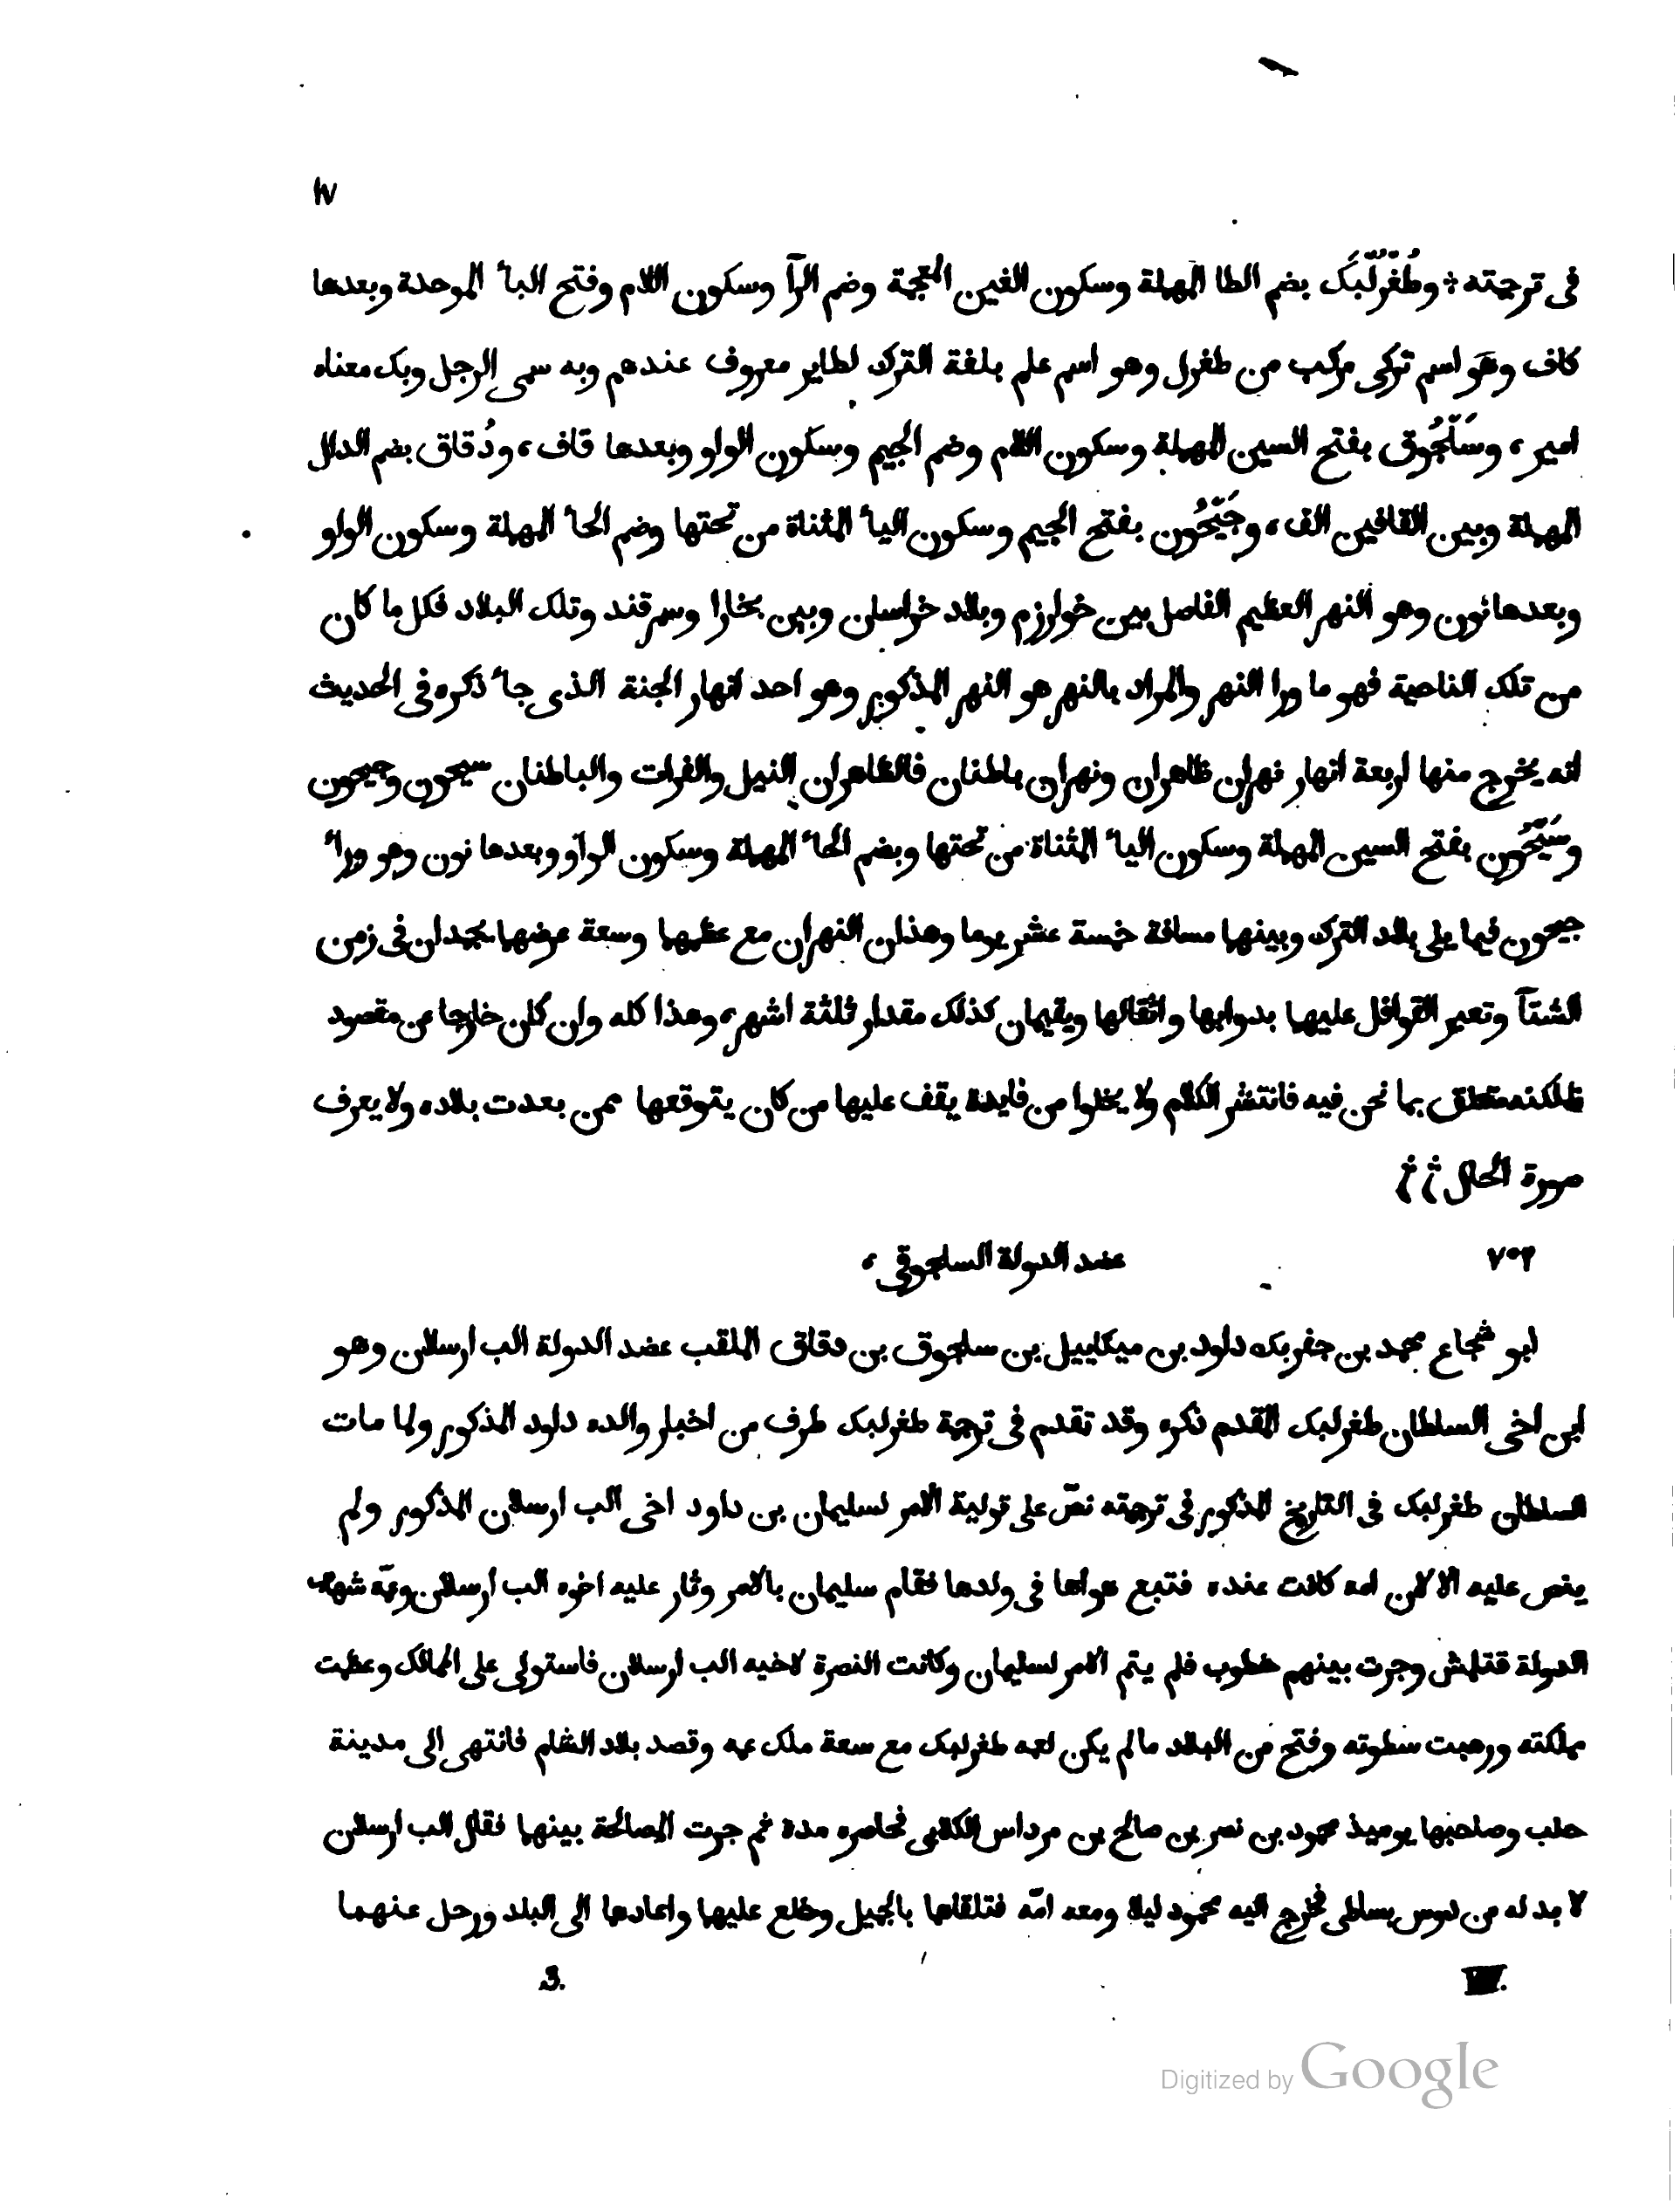 ١٧
فى ترجمته ؞ وطُغْرُلْبَك بضم الطا المهملة وسكون الغين المعجمة وضم الرآ وسكون اللام وفتح البأ الموحدة وبعدها
كاف وهَو اسم تركى مركب من طغرل وهو اسم علم بلغة الترك لطاير معروف عندهم وبه سمى الرجل وبك معناه
امير، وسَلْجُوق بفتح السين المهملة وسكون اللام وضم الجيم وسكون الواو وبعدها قاف، ودُقاق بضم الدال
المهملة وبين القافين الف، وجَيْحُون بفتح الجيم وسكون اليأ المثناة من تحتها وضم الحأ المهملة وسكون الواو
وبعدها نون وهو النهر العظيم الفاصل بين خوارزم وبلاد خراسان وبين بخارا وسمرقند وتلك البلاد فكل ما كان
من تلك الناحية فهو ما ورا النهر والمراد بالنهر هو النهر المذكور وهو احد انهار الجنة الذى جأ ذكره فى الحديث
انه يخرج منها اربعة انهار نهران ظاهران ونهران باطنان فالظاهران النيل والفرات والباطنان سيحون وجيحون
وسَيْحُون بفتح السين المهملة وسكون اليأ المثناة من تحتها وبضم الحأ المهملة وسكون الواو وبعدها نون وهو ورأ
جيحون فيما يلى بلاد الترك وبينهما مسافة خمسة عشر يوما وهذان النهران مع عظمهما وسعة عرضهما يجمدان فى زمن
الشتآ وتعبر القوافل عليهما بدوابها واثقالها ويقيمان كذلك مقدار ثلثة اشهر، وهذا كله وان كان خارجا عن مقصود
فلكنه متعلق بما نحن فيه فانتشر الكلام ولا يخلوا من فايدة يقف عليها من كان يتوقعها ممن بعدت بلاده ولا يعرف
صورة الحال ؞ ؞
٧٠٢ عضد الدولة السلجوقى،
ابو شجاع محمد بن جغربك داود بن ميكاييل بن سلجوق بن دقاق الملقب عضد الدولة الب ارسلان وهو
ابن اخى السلطان طغرلبك المقدم ذكره وقد تقدم فى ترجمة طغرلبك طرف من اخبار والده داود المذكور ولما مات
السلطان طغرلبك فى التاريخ المذكور فى ترجمته نصّ على تولية الامر لسليمان بن داود اخى الب ارسلان المذكور ولم
ينص عليه الا لان امه كانت عنده فتبع هواها فى ولدها فقام سليمان بالامر وثار عليه اخوه الب ارسلان وعمّه شهاب
الدولة قتلمش وجرت بينهم خطوب فلم يتم الامر لسليمان وكانت النصرة لاخيه الب ارسلان فاستولى على الممالك وعظمت
مملكته ورهبت سطوته وفتح من البلاد ما لم يكن لعمه طغرلبك مع سعة ملك عمه وقصد بلاد الشام فانتهى الى مدينة
حلب وصاحبها يوميذ محمود بن نصر بن صالح بن مرداس الكلابى فحاصره مدة ثم جرت المصالحة بينهما فقال الب ارسلان
لا بد له من دوس بساطى فخرج اليه محمود ليلا ومعه امّه فتلقاها بالجميل وخلع عليهما واعادها الى البلد ورحل عنهما
VIII. 3.
Digitized by Google